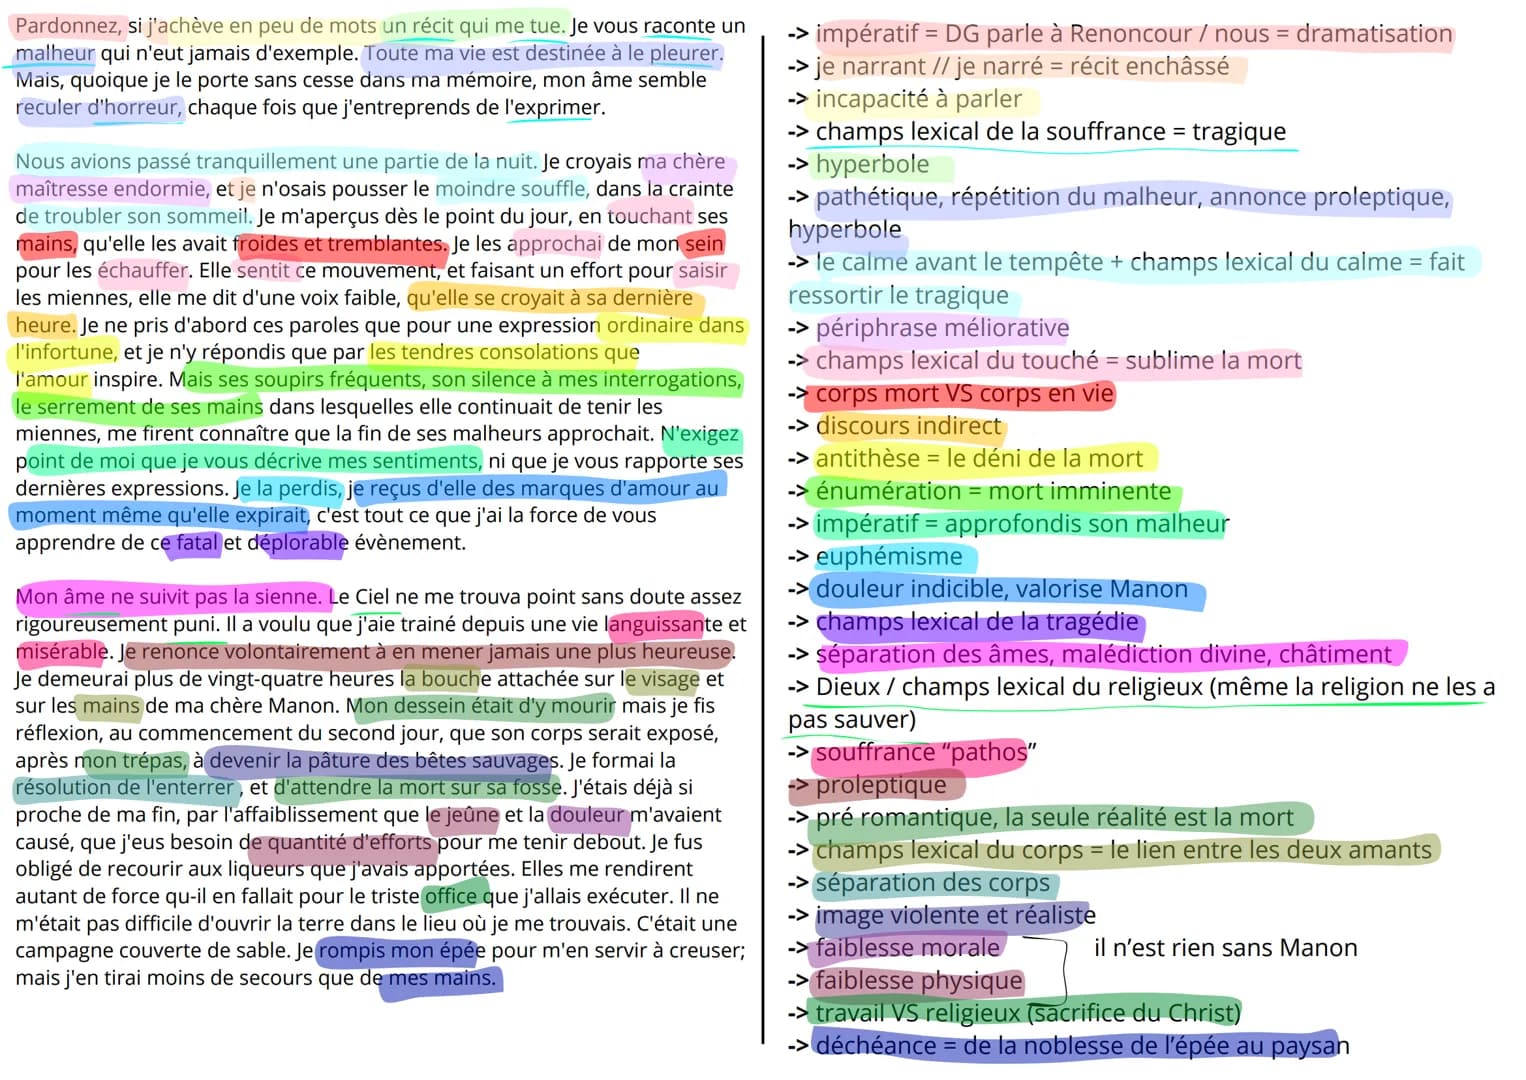 Pardonnez, si j'achève en peu de mots un récit qui me tue. Je vous raconte un
malheur qui n'eut jamais d'exemple. Toute ma vie est destinée à le pleurer.
Mais, quoique je le porte sans cesse dans ma mémoire, mon âme semble
reculer d'horreur, chaque fois que j'entreprends de l'exprimer.
Nous avions passé tranquillement une partie de la nuit. Je croyais ma chère
maîtresse endormie, et je n'osais pousser le moindre souffle, dans la crainte
de troubler son sommeil. Je m'aperçus dès le point du jour, en touchant ses
mains, qu'elle les avait froides et tremblantes. Je les approchai de mon sein
pour les échauffer. Elle sentit ce mouvement, et faisant un effort pour saisir
les miennes, elle me dit d'une voix faible, qu'elle se croyait à sa dernière
heure. Je ne pris d'abord ces paroles que pour une expression ordinaire dans
l'infortune, et je n'y répondis que par les tendres consolations que
l'amour inspire. Mais ses soupirs fréquents, son silence à mes interrogations,
le serrement de ses mains dans lesquelles elle continuait de tenir les
miennes, me firent connaître que la fin de ses malheurs approchait. N'exigez
point de moi que je vous décrive mes sentiments, ni que je vous rapporte ses
dernières expressions. Je la perdis, je reçus d'elle des marques d'amour au
moment même qu'elle expirait, c'est tout ce que j'ai la force de vous
apprendre de ce fatal et déplorable évènement.
Mon âme ne suivit pas la sienne. Le Ciel ne me trouva point sans doute assez
rigoureusement puni. Il a voulu que j'aie trainé depuis une vie languissante et
misérable. Je renonce volontairement à en mener jamais une plus heureuse.
Je demeurai plus de vingt-quatre heures la bouche attachée sur le visage et
sur les mains de ma chère Manon. Mon dessein était d'y mourir mais je fis
réflexion, au commencement du second jour, que son corps serait exposé,
après mon trépas, à devenir la pâture des bêtes sauvages. Je formai la
résolution de l'enterrer , et d'attendre la mort sur sa fosse. J'étais déjà si
proche de ma fin, par l'affaiblissement que le jeûne et la douleur m'avaient
causé, que j'eus besoin de quantité d'efforts pour me tenir debout. Je fus
obligé de recourir aux liqueurs que j'avais apportées. Elles me rendirent
autant de force qu-il en fallait pour le triste office que j'allais exécuter. Il ne
m'était pas difficile d'ouvrir la terre dans le lieu où je me trouvais. C'était une
campagne couverte de sable. Je rompis mon épée pour m'en servir à creuser;
mais j'en tirai moins de secours que de mes mains.
-> impératif = DG parle à Renoncour / nous = dramatisation
-> je narrant // je narré = récit enchâssé
-> incapacité à parler
-> champs lexical de la souffrance = tragique
-> hyperbole
-> pathétique, répétition du malheur, annonce proleptique,
hyperbole
-> le calme avant le tempête + champs lexical du calme = fait
ressortir le tragique
-> périphrase méliorative
-> champs lexical du touché = sublime la mort
-> corps mort VS corps en vie
-> discours indirect
-> antithèse = le déni de la mort
-> énumération = mort imminente
-> impératif = approfondis son malheur
-> euphémisme
-> douleur indicible, valorise Manon
-> champs lexical de la tragédie
-> séparation des âmes, malédiction divine, châtiment
-> Dieux / champs lexical du religieux (même la religion ne les a
pas sauver)
-> souffrance “pathos”
-> proleptique
-> pré romantique, la seule réalité est la mort
-> champs lexical du corps = le lien entre les deux amants
-> séparation des corps
-> image violente et réaliste
-> faiblesse morale
il n’est rien sans Manon
-> faiblesse physique
-> travail VS religieux (sacrifice du Christ)
-> déchéance = de la noblesse de l’épée au paysan